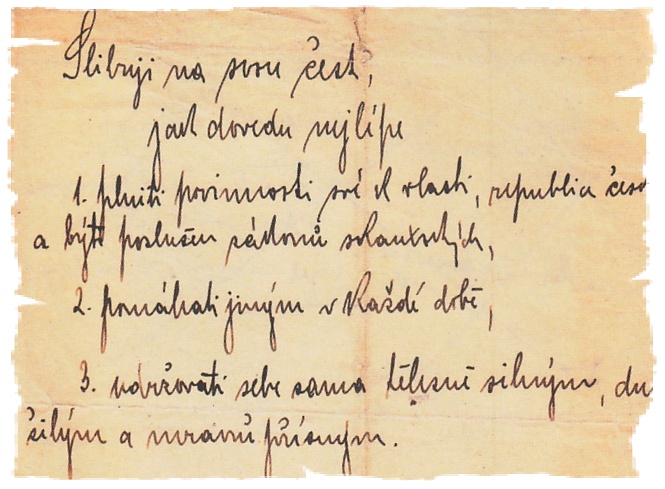 Slibuji na svou čest,
jak dovedu nejlépe
1. plniti povinnosti své k vlasti, republice česk
a býti poslušen zákonů skautských,
2. pomáhati jiným v každé době,
3. udržovati sebe sama tělesně silným, du
šilým a mravně přísným.